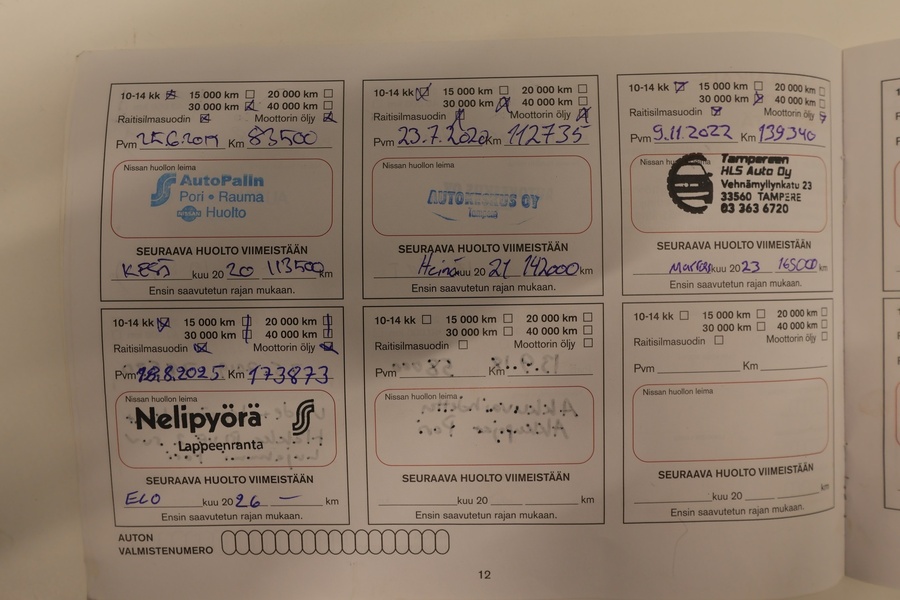 10-14 kk 15 000 km 20 000 km
30 000 km 40 000 km
Raitisilmasuodin Moottorin öljy
Pvm 25.6.2019 Km 83500
Nissan huollon leima
AutoPalin
Pori • Rauma
NISSAN Huolto
SEURAAVA HUOLTO VIIMEISTÄÄN
KESÄ kuu 20 20 113500 km
Ensin saavutetun rajan mukaan.
10-14 kk 15 000 km 20 000 km
30 000 km 40 000 km
Raitisilmasuodin Moottorin öljy
Pvm 23.7.2020 Km 112735
Nissan huollon leima
AUTOKESKUS OY
SEURAAVA HUOLTO VIIMEISTÄÄN
Heinä kuu 20 21 142000 km
Ensin saavutetun rajan mukaan.
10-14 kk 15 000 km 20 000 km
30 000 km 40 000 km
Raitisilmasuodin Moottorin öljy
Pvm 9.11.2022 Km 139340
Nissan huollon leima
Tampereen
HLS Auto Oy
Vehnämyllynkatu 23
33560 TAMPERE
03 363 6720
SEURAAVA HUOLTO VIIMEISTÄÄN
Marras kuu 20 23 165000 km
Ensin saavutetun rajan mukaan.
10-14 kk 15 000 km 20 000 km
30 000 km 40 000 km
Raitisilmasuodin Moottorin öljy
Pvm 18.8.2025 Km 173873
Nissan huollon leima
Nelipyörä
Lappeenranta
SEURAAVA HUOLTO VIIMEISTÄÄN
ELO kuu 20 26 — km
Ensin saavutetun rajan mukaan.
10-14 kk 15 000 km 20 000 km
30 000 km 40 000 km
Raitisilmasuodin Moottorin öljy
Pvm Km
Nissan huollon leima
SEURAAVA HUOLTO VIIMEISTÄÄN
kuu 20 km
Ensin saavutetun rajan mukaan.
10-14 kk 15 000 km 20 000 km
30 000 km 40 000 km
Raitisilmasuodin Moottorin öljy
Pvm Km
Nissan huollon leima
SEURAAVA HUOLTO VIIMEISTÄÄN
kuu 20 km
Ensin saavutetun rajan mukaan.
AUTON
VALMISTENUMERO
12